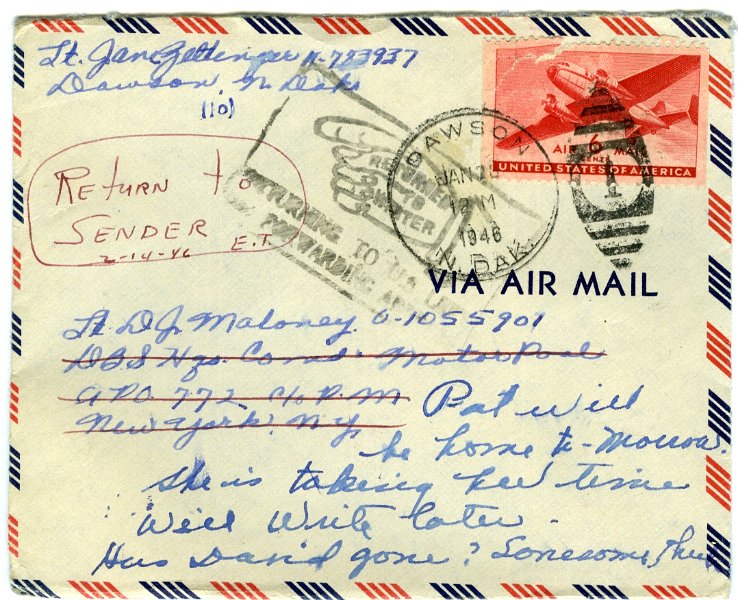 Lt. Jane N-783937
Dawson, N. Dak.
(10)
AIR 6 MAIL
CENTS
UNITED STATES OF AMERICA
DAWSON
JAN
1946
N. DAK.
RETURNED
TO
WRITER
RETURNING TO
FORWARDING
Return to
Sender
2-14-46 E.T.
VIA AIR MAIL
Lt. D.J. Maloney O-1055901
Motor Pool
A.P.O. 772 c/o P.M
New York, N.Y.
Pat will
be home to-morrow.
She is taking her time
Will write later.
Has David gone? Lonesome,